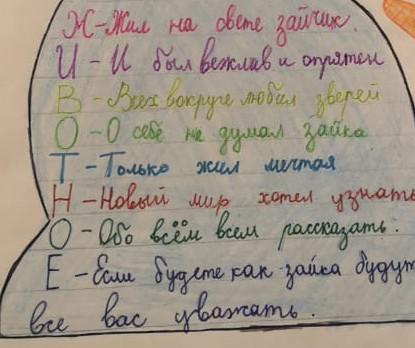 Ж-Жил на свете зайчик.
И - И был вежлив и опрятен
В - Всех вокруге любил зверей
О - О себе не думал зайка
Т - Только жил мечтая
Н - Новый мир хотел узнать
О - Обо всём всем рассказать.
Е - Если будете как зайка будут
все вас уважать.